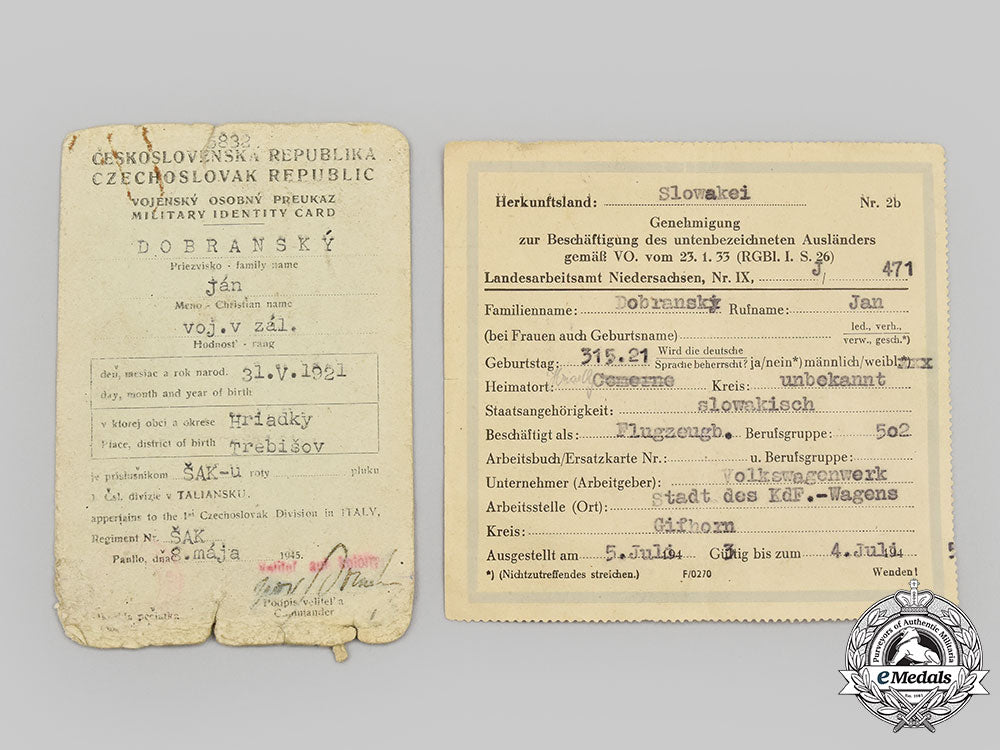 5832
ČESKOSLOVENSKÁ REPUBLIKA
CZECHOSLOVAK REPUBLIC
VOJENSKÝ OSOBNÝ PREUKAZ
MILITARY IDENTITY CARD
DOBRANSKÝ
Priezvisko - family name
Ján
Meno - Christian name
voj. v zál.
Hodnosť - rang
deň, mesiac a rok narod. 31.V.1921
day, month and year of birth
v ktorej obci a okrese Hriadky
Place, district of birth Trebišov
je príslušníkom ŠAK-u roty pluku
1. čsl. divízie v TALIANSKU.
appertains to the 1st Czechoslovak Division in ITALY,
Regiment Nr. ŠAK
Panllo, dňa 8. mája 1945.
Podpis veliteľa
Commander
Herkunftsland: Slowakei Nr. 2b
Genehmigung
zur Beschäftigung des untenbezeichneten Ausländers
gemäß VO. vom 23. 1. 33 (RGBl. I. S. 26)
Landesarbeitsamt Niedersachsen, Nr. IX, J/ 471
Familienname: Dobranský Rufname: Jan
(bei Frauen auch Geburtsname) led., verh., verw., gesch.*)
Geburtstag: 315.21 Wird die deutsche Sprache beherrscht? ja/nein*) männlich/weibl.
Heimatort: Cemerne Kreis: unbekannt
Staatsangehörigkeit: slowakisch
Beschäftigt als: Flugzeugb. Berufsgruppe: 502
Arbeitsbuch/Ersatzkarte Nr.: u. Berufsgruppe:
Unternehmer (Arbeitgeber): Volkswagenwerk
Arbeitsstelle (Ort): Stadt des KdF.-Wagens
Kreis: Gifhorn
Ausgestellt am 5. Juli 194 3 Gültig bis zum 4. Juli 194 5
*) (Nichtzutreffendes streichen.) F/0270 Wenden!
Purveyors of Authentic Militaria
eMedals